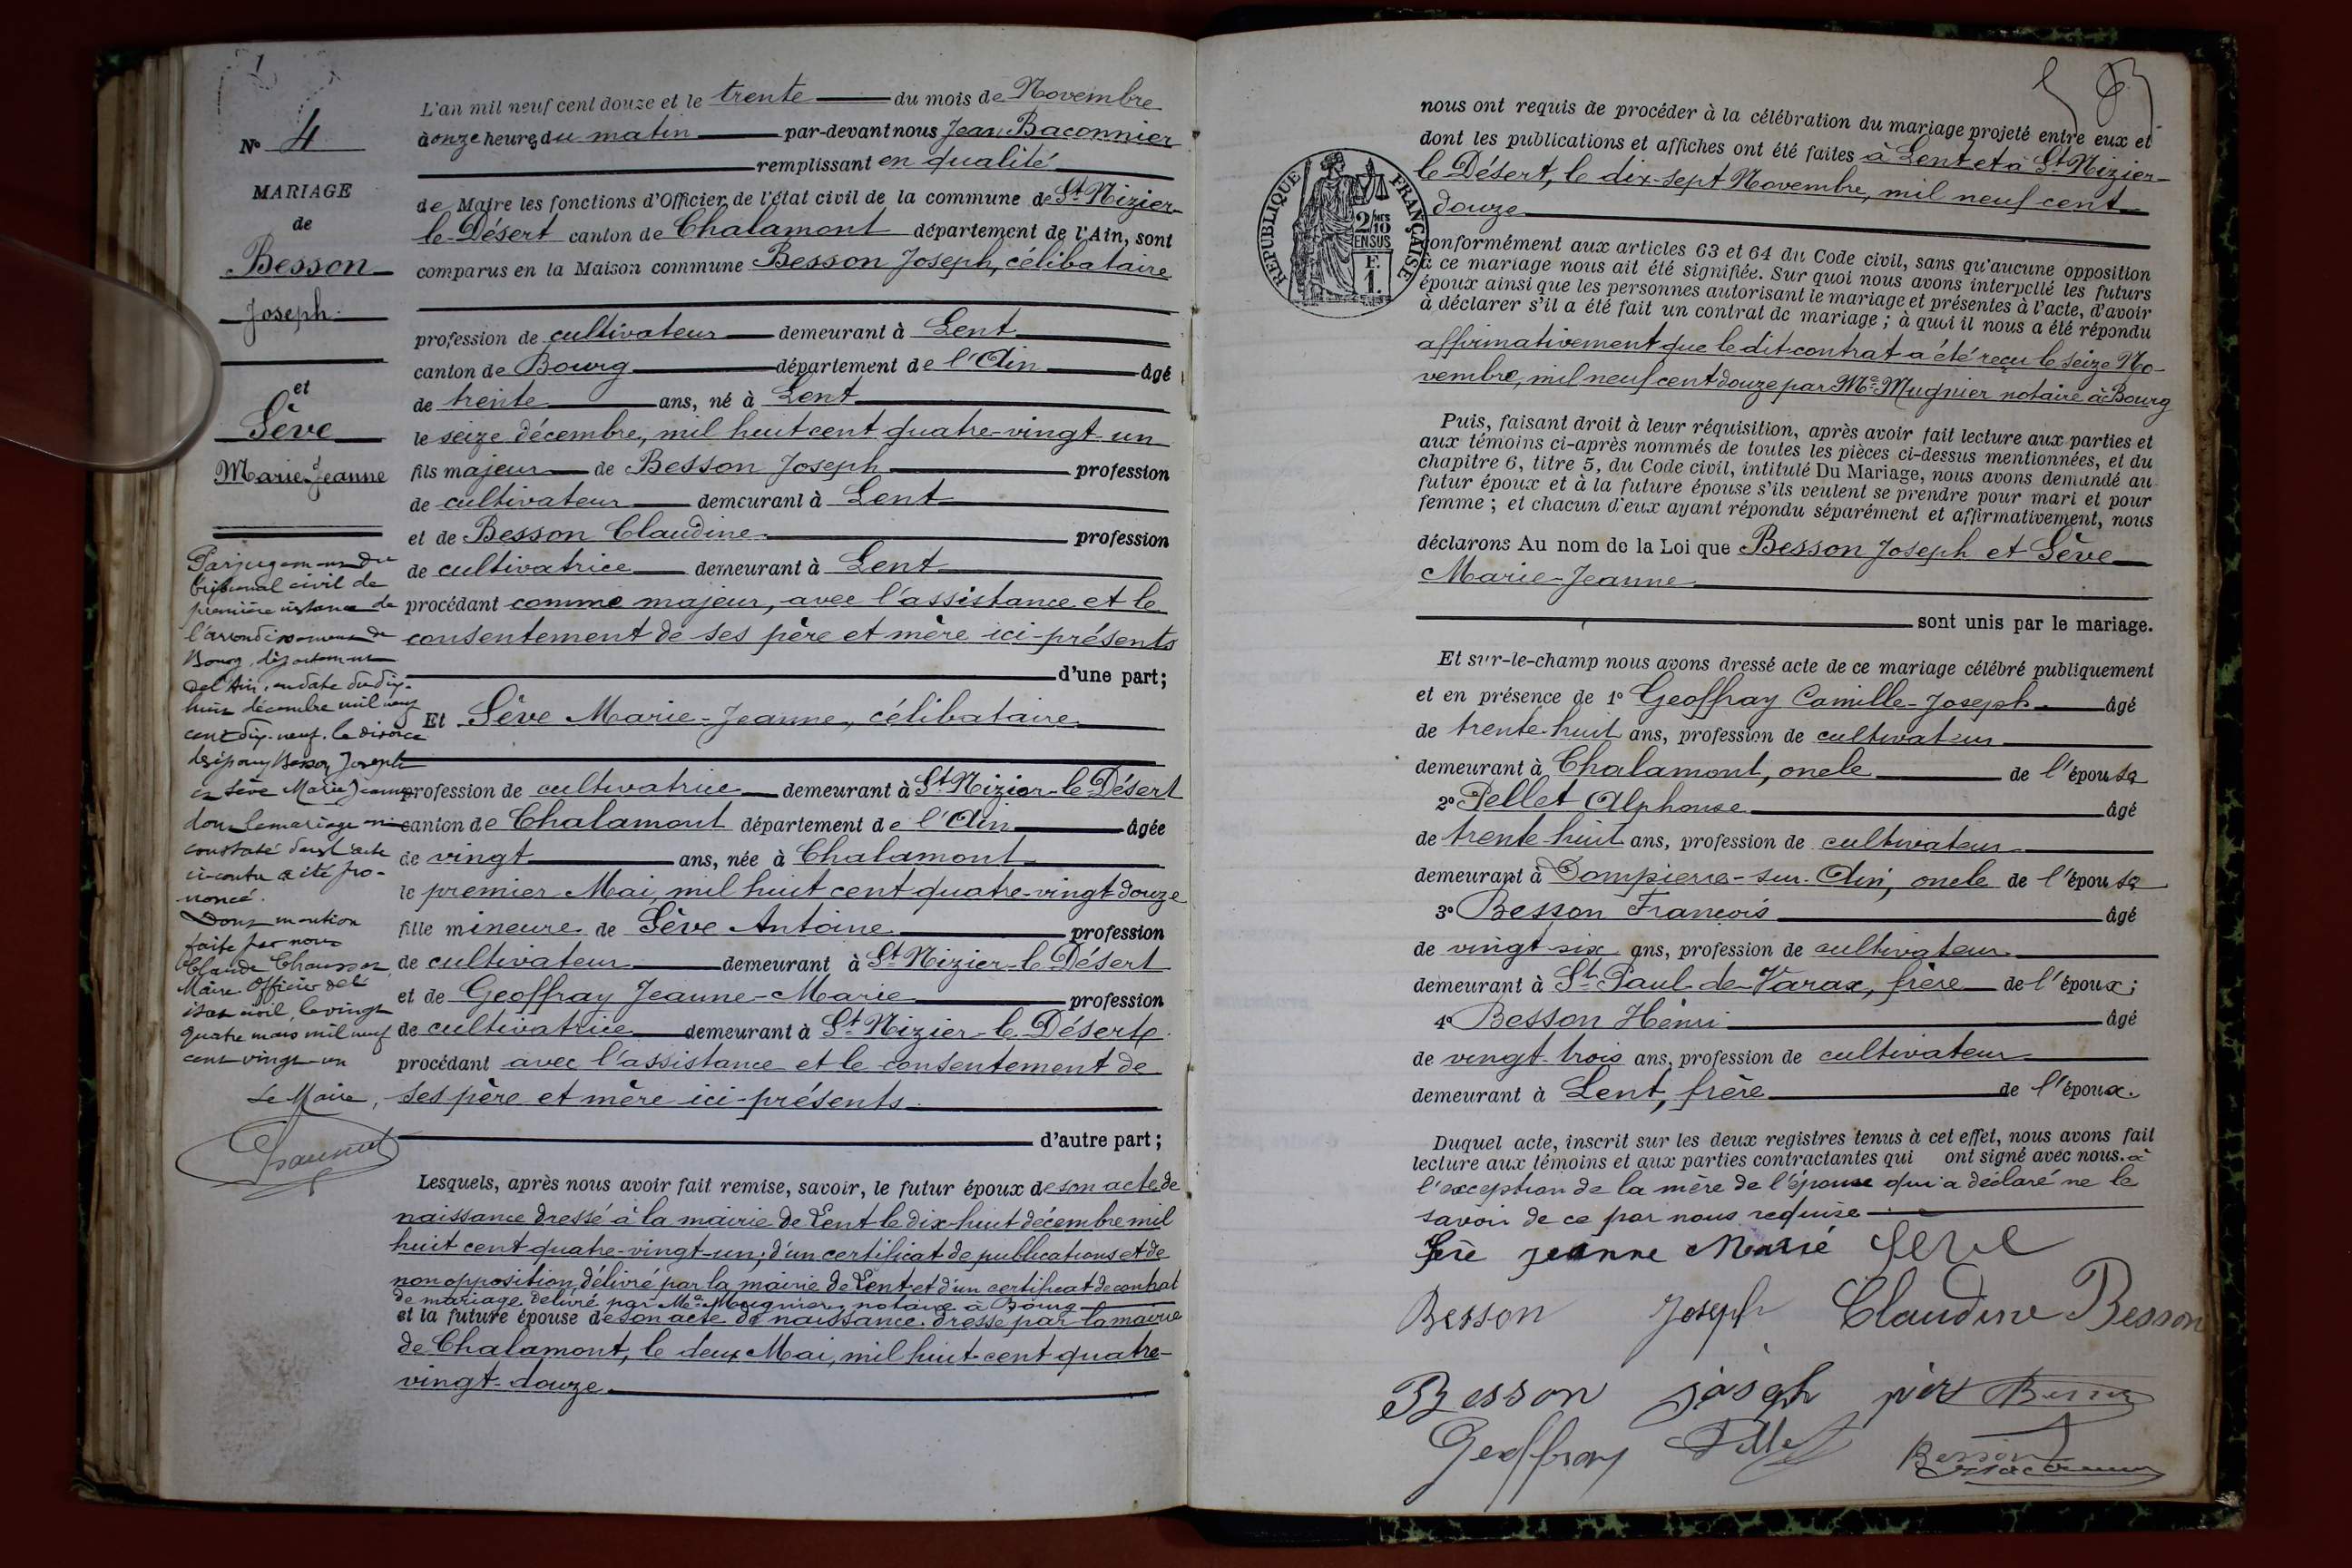 N° 4
MARIAGE
de
Besson
Joseph
et
Sève
Marie-Jeanne
Par jugement du
tribunal civil de
première instance de
l'arrondissement de
Bourg, département
de l'Ain, en date du dix-
huit décembre mil neuf
cent dix-neuf, le divorce
des époux Besson Joseph
et Sève Marie Jeanne
dont le mariage est
constaté dans l'acte
ci-contre a été pro-
noncé.
Dont mention
faite par nous
Claude
Maire Officier de l'
état civil, le vingt
quatre mars mil neuf
cent vingt un
Le Maire,
L'an mil neuf cent douze et le trente du mois de Novembre
à onze heures du matin par-devant nous Jean Baconnier
remplissant en qualité
de Maire les fonctions d'Officier de l'état civil de la commune de St Nizier-
le-Désert canton de Chalamont département de l'Ain, sont
comparus en la Maison commune Besson Joseph, célibataire
profession de cultivateur demeurant à Lent
canton de Bourg département de l'Ain âgé
de trente ans, né à Lent
le seize décembre, mil huit cent quatre-vingt-un
fils majeur de Besson Joseph profession
de cultivateur demeurant à Lent
et de Besson Claudine profession
de cultivatrice demeurant à Lent
procédant comme majeur, avec l'assistance et le
consentement de ses père et mère ici-présents
d'une part;
Et Sève Marie-Jeanne, célibataire
profession de cultivatrice demeurant à St Nizier-le-Désert
canton de Chalamont département de l'Ain âgée
de vingt ans, née à Chalamont
le premier Mai, mil huit cent quatre-vingt-douze
fille mineure de Sève Antoine profession
de cultivateur demeurant à St Nizier-le-Désert
et de Geoffray Jeanne-Marie profession
de cultivatrice demeurant à St Nizier-le-Désert
procédant avec l'assistance et le consentement de
ses père et mère ici-présents
d'autre part;
Lesquels, après nous avoir fait remise, savoir, le futur époux de son acte de
naissance dressé à la mairie de Lent le dix-huit décembre mil
huit cent quatre-vingt-un; d'un certificat de publications et de
non opposition, délivré par la mairie de Lent et d'un certificat de contrat
de mariage délivré par Me Mugnier, notaire à Bourg
et la future épouse de son acte de naissance dressé par la mairie
de Chalamont, le deux Mai, mil huit cent quatre-
vingt-douze
nous ont requis de procéder à la célébration du mariage projeté entre eux et
dont les publications et affiches ont été faites à Lent et à St Nizier-
le Désert, le dix-sept Novembre, mil neuf cent
douze
REPUBLIQUE FRANÇAISE
2/10 EN SUS
F.
1.
conformément aux articles 63 et 64 du Code civil, sans qu'aucune opposition
à ce mariage nous ait été signifiée. Sur quoi nous avons interpellé les futurs
époux ainsi que les personnes autorisant le mariage et présentes à l'acte, d'avoir
à déclarer s'il a été fait un contrat de mariage; à quoi il nous a été répondu
affirmativement que le dit contrat a été reçu le seize No-
vembre, mil neuf cent douze par Me Mugnier notaire à Bourg
Puis, faisant droit à leur réquisition, après avoir fait lecture aux parties et
aux témoins ci-après nommés de toutes les pièces ci-dessus mentionnées, et du
chapitre 6, titre 5, du Code civil, intitulé Du Mariage, nous avons demandé au
futur époux et à la future épouse s'ils veulent se prendre pour mari et pour
femme; et chacun d'eux ayant répondu séparément et affirmativement, nous
déclarons Au nom de la Loi que Besson Joseph et Sève
Marie-Jeanne
sont unis par le mariage.
Et sur-le-champ nous avons dressé acte de ce mariage célébré publiquement
et en présence de 1° Geoffray Camille-Joseph âgé
de trente-huit ans, profession de cultivateur
demeurant à Chalamont, oncle de l'épouse
2° Pellet Alphonse âgé
de trente huit ans, profession de cultivateur
demeurant à Dompierre-sur-Ain, oncle de l'épouse
3° Besson François âgé
de vingt-six ans, profession de cultivateur
demeurant à St Paul-de-Varax, frère de l'époux;
4° Besson Henri âgé
de vingt-trois ans, profession de cultivateur
demeurant à Lent, frère de l'époux.
Duquel acte, inscrit sur les deux registres tenus à cet effet, nous avons fait
lecture aux témoins et aux parties contractantes qui ont signé avec nous. à
l'exception de la mère de l'épouse qui a déclaré ne le
savoir de ce par nous requise
jeanne Marie Seve
Besson Joseph Claudine Besson
Besson joseph père Besson
Geoffray Pellet Besson